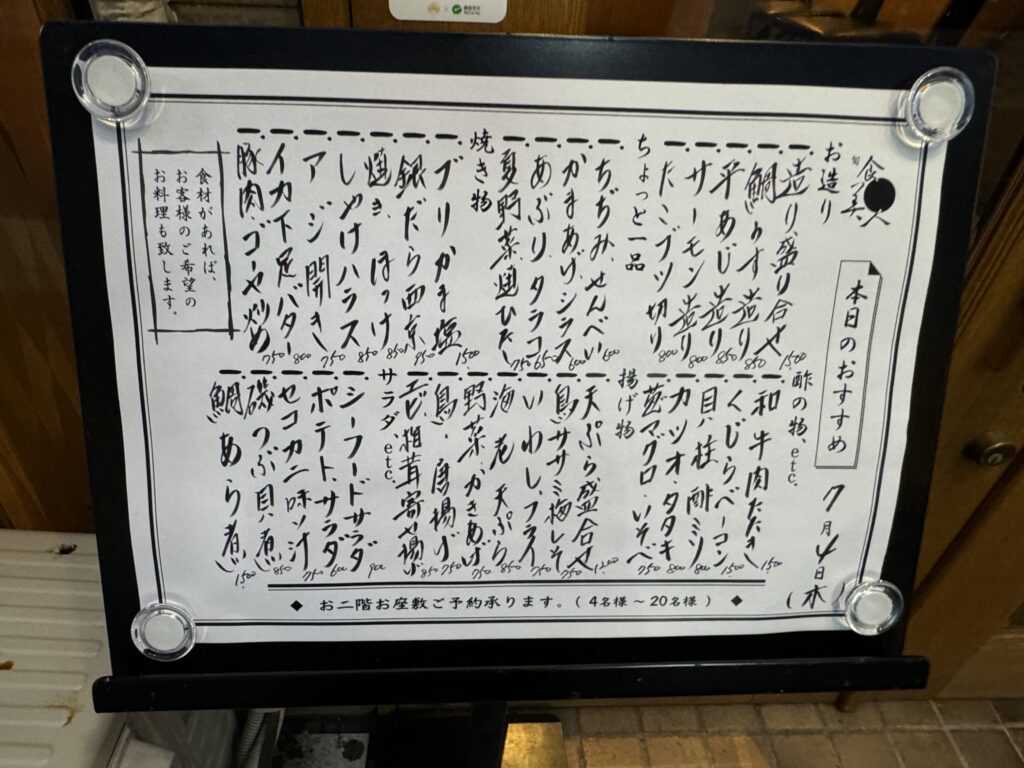 本日のおすすめ
7月4日(木)
旬 食美人
お造り
造り盛り合せ 1500
鯛らす造り 850
平あじ造り 850
サーモン造り 800
たこブツ切り 800
ちょっと一品
ちぢみせんべい 600
かまあげシラス 600
あぶりタラコ 650
夏野菜煮びたし 750
焼き物
ブリかま塩 1500
銀だら西京 950
焼き、ほっけ 850
しゃけハラス 850
アジ開き 750
イカ下足バター 800
豚肉ゴーヤ炒め 750
食材があれば、
お客様のご希望の
お料理も致します。
酢の物、etc.
和牛肉たたき 1500
くじらベーコン 1500
貝柱酢ミソ 800
カツオ、タタキ 800
マグロ、いそべ 750
揚げ物
天ぷら盛合せ 1200
鳥ササミ梅しそ 750
いわし、フライ 750
海老天ぷら 850
野菜、かきあげ 750
鳥、唐揚げ 750
エビ、椎茸寄せ揚げ 850
サラダ、etc.
シーフードサラダ 900
ポテト、サラダ 600
セコカニ味ソ汁 750
磯つぶ貝、煮 850
鯛あら煮 1500
◆ お二階お座敷ご予約承ります。(4名様~20名様) ◆